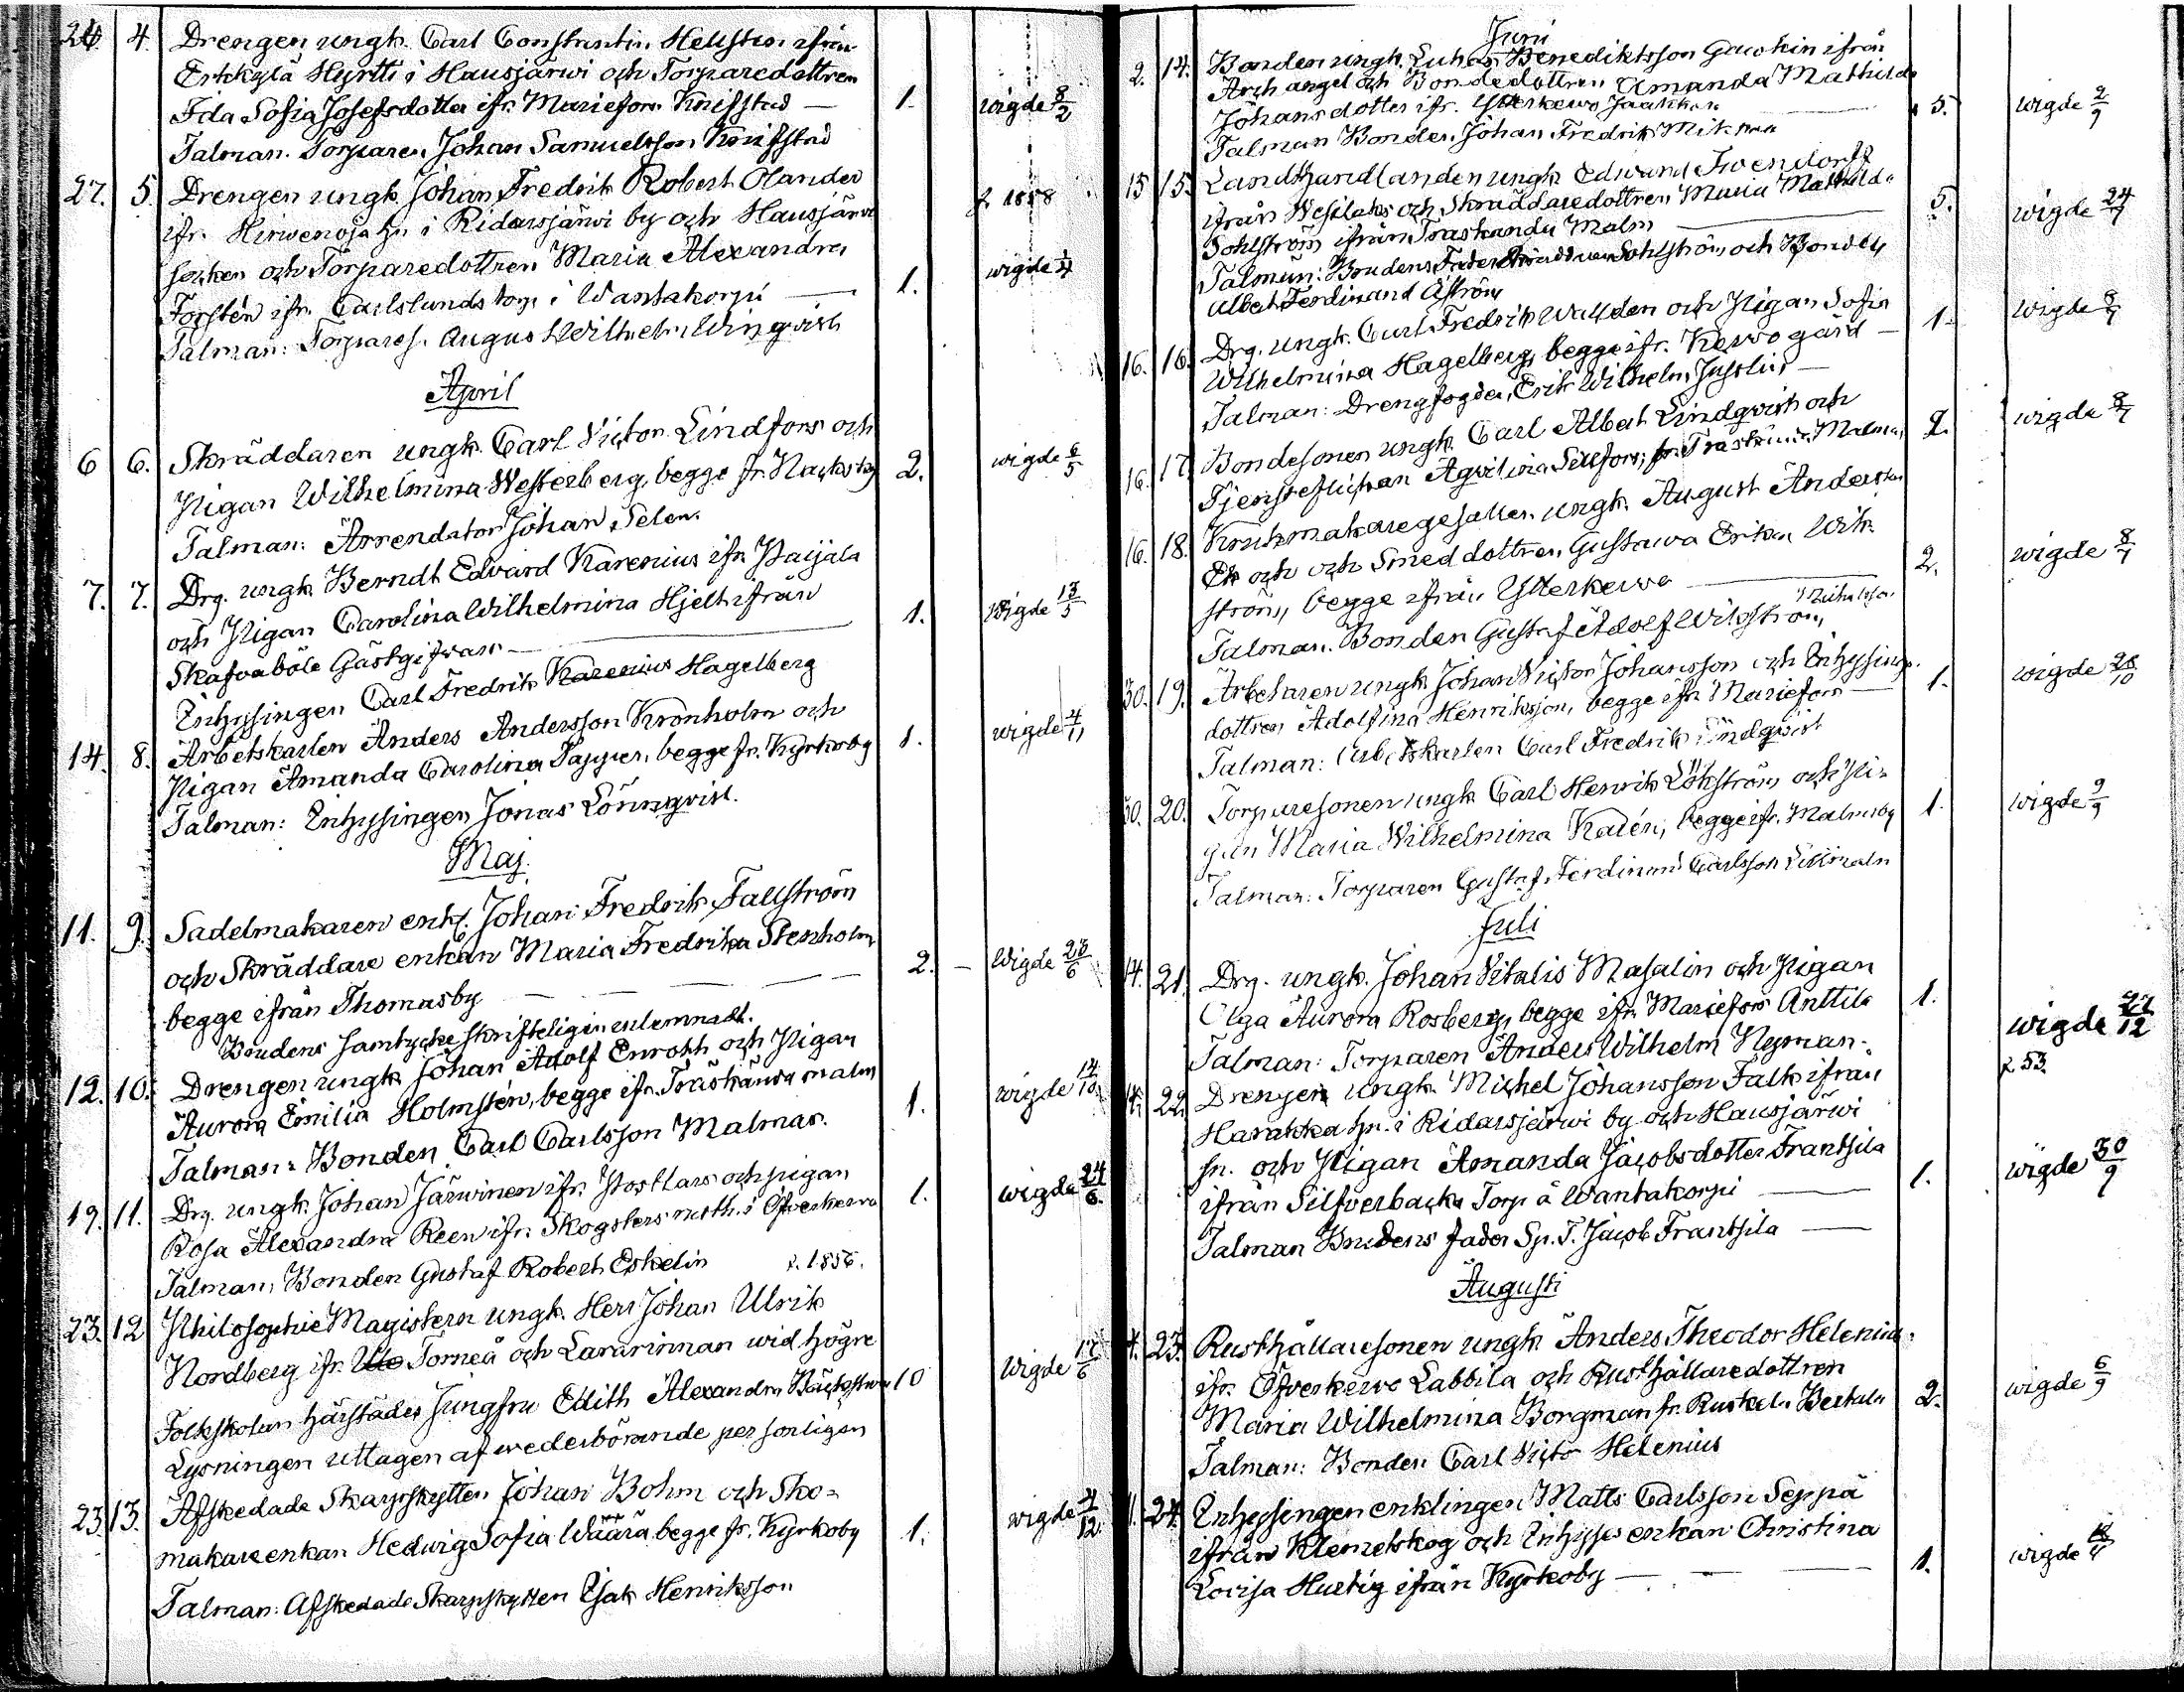 24. 4. Drengen ungk. Carl Constantin Hellsten ifrån
Erkkylä Hyrtti i Hausjärwi och Torparedottren
Ida Sofia Josefsdotter ifr. Mariefors Knifstad — 1. wigde 8/2
Talman. Torparen Johan Samuelsson Knifstad
27. 5. Drengen ungk. Johan Fredrik Robert Olander f. 1858
ifr. Hirwenoja hn. i Ridasjärwi by och Hausjärwi
socken och Torparedottren Maria Alexandra
Forstén ifr. Carlslunds torp i Wantakorpi — 1. wigde 1/4
Talman: Torpares. August Wilhelm Winqvist
April
6 6. Skräddaren ungk. Carl Victor Lindfors och
Pigan Wilhelmina Westerberg, begge fr. Nackeby 2. wigde 6/5
Talman: Arrendator Johan Selen.
7. 7. Drg. ungk. Berndt Edvard Karenius ifr. Paijala
och Pigan Carolina Wilhelmina Hjelt ifrån
Skafvaböle Gästgifvars — 1. wigde 13/5
Inhysingen Carl Fredrik Karenius Hagelberg
14. 8. Arbetskarlen Anders Andersson Kronholm och
Pigan Amanda Carolina Tapper, begge fr. Kyrkoby 1. wigde 4/11
Talman: Inhysingen Jonas Lönnqvist.
Maj.
11. 9. Sadelmakaren enkl. Johan Fredrik Fallström
och Skräddare enkan Maria Fredrika Stenholm
begge ifrån Thomasby — 2. — wigde 28/6
Brudens samtycke skrifteligen inlemnadt.
12. 10. Drengen ungk. Johan Adolf Enroth och Pigan
Aurora Emilia Holmstén, begge ifr. Träskända malm 1. wigde 14/10
Talman: Bonden Carl Carlsson Malmar.
19. 11. Drg. ungk. Johan Järwinen ifr. Postlars och pigan
Rosa Alexandra Reen ifr. Skogsters i Öfverkerwo 1. wigde 24/6.
Talman, Bonden Gustaf Robert Eskelin f. 1856.
23. 12 Philosophie Magistern ungk. Herr Johan Ulrik
Nordberg ifr. Torneå och Lärarinnan wid högre
Folkskolan härstädes Jungfru Edith Alexandra Bäckström 10 wigde 17/6
Lysningen uttagen af wederbörande personligen
23. 13. Afskedade Skarpskytten Johan Bohm och Sko-
makareenkan Hedwig Sofia Wäärä begge fr. Kyrkoby 1. wigde 4/12
Talman: Afskedade Skarpskytten Isak Henriksson
Juni
2. 14. Bonden ungk. Lukas Benediktsson Gawkin ifrån
Archangel och Bondedottren Amanda Mathilda
Johansdotter ifr. Ytterkerwo Jaakkola 5. wigde 2/9
Talman Bonden Johan Fredrik
15 15. Landthandlanden ungk. Edward Iwendorff
ifrån Wesilaks och Skräddaredottren Maria Mathilda
Sohlström ifrån Träskända Malm 5. wigde 24/7
Talman: Brudens Fader Skräddaren Sohlström och
Albert Ferdinand Åström
16. 16. Drg. ungk. Carl Fredrik Walldén och Pigan Sofia
Wilhelmina Hagelberg, begge ifr. Kerwo gård — 1. wigde 8/7
Talman: Drengfogden Erik Wilhelm Jusslin —
16. 17. Bondesonen ungk. Carl Albert Lindqvist och
Tjensteflickan Aqvilina Sellfors, fr. Träskända Malm 2. wigde 8/7
16. 18. Krukmakaregesällen ungk. August Andersson
Ek och och Smeddottren Gustawa Erika Wik-
ström, begge ifrån Ytterkerwo — 2. wigde 8/7
Talman. Bonden Gustaf Adolf Wikström
30. 19. Arbetaren ungk. Johan Victor Johansson och Inhysinge-
dottren Adolfina Henriksson, begge ifr. Mariefors — 1. wigde 28/10
Talman: Arbetskarlen Carl Fredrik Lindqvist
30. 20. Torparesonen ungk. Carl Henrik Löfström och Pi-
gan Maria Wilhelmina Kalén, begge ifr. Malmby 1. wigde 9/9
Talman: Torparen Gustaf Ferdinand Carlsson
Juli
14. 21. Drg. ungk. Johan Vitalis Masalin och Pigan
Olga Aurora Rosberg, begge ifr. Mariefors Anttila 1. wigde 27/12
Talman: Torparen Anders Wilhelm Nyman. f. 53.
14. 22. Drengen ungk. Michel Johansson Falk ifrån
Harakka hn. i Ridasjärwi by och Hausjärwi
sn. och Pigan Amanda Jacobsdotter Frantsila
ifrån Silfverbacka Torp å Wantakorpi — 1. wigde 30/9
Talman Brudens fader Sp. T. Jacob Frantsila —
Augusti
4. 23. Rusthållaresonen ungk. Anders Theodor Helenius
ifr. Öfverkerwo Labbila och Rusthållaredottren
Maria Wilhelmina Borgman fr. Ruskela Bertula 2. wigde 6/9
Talman: Bonden Carl Victor Helenius
11. 24. Inhysingen enklingen Matts Carlsson Seppä
ifrån Klemetskog och Inhyses enkan Christina
Lovisa Hurtig ifrån Kyrkoby — 1. wigde